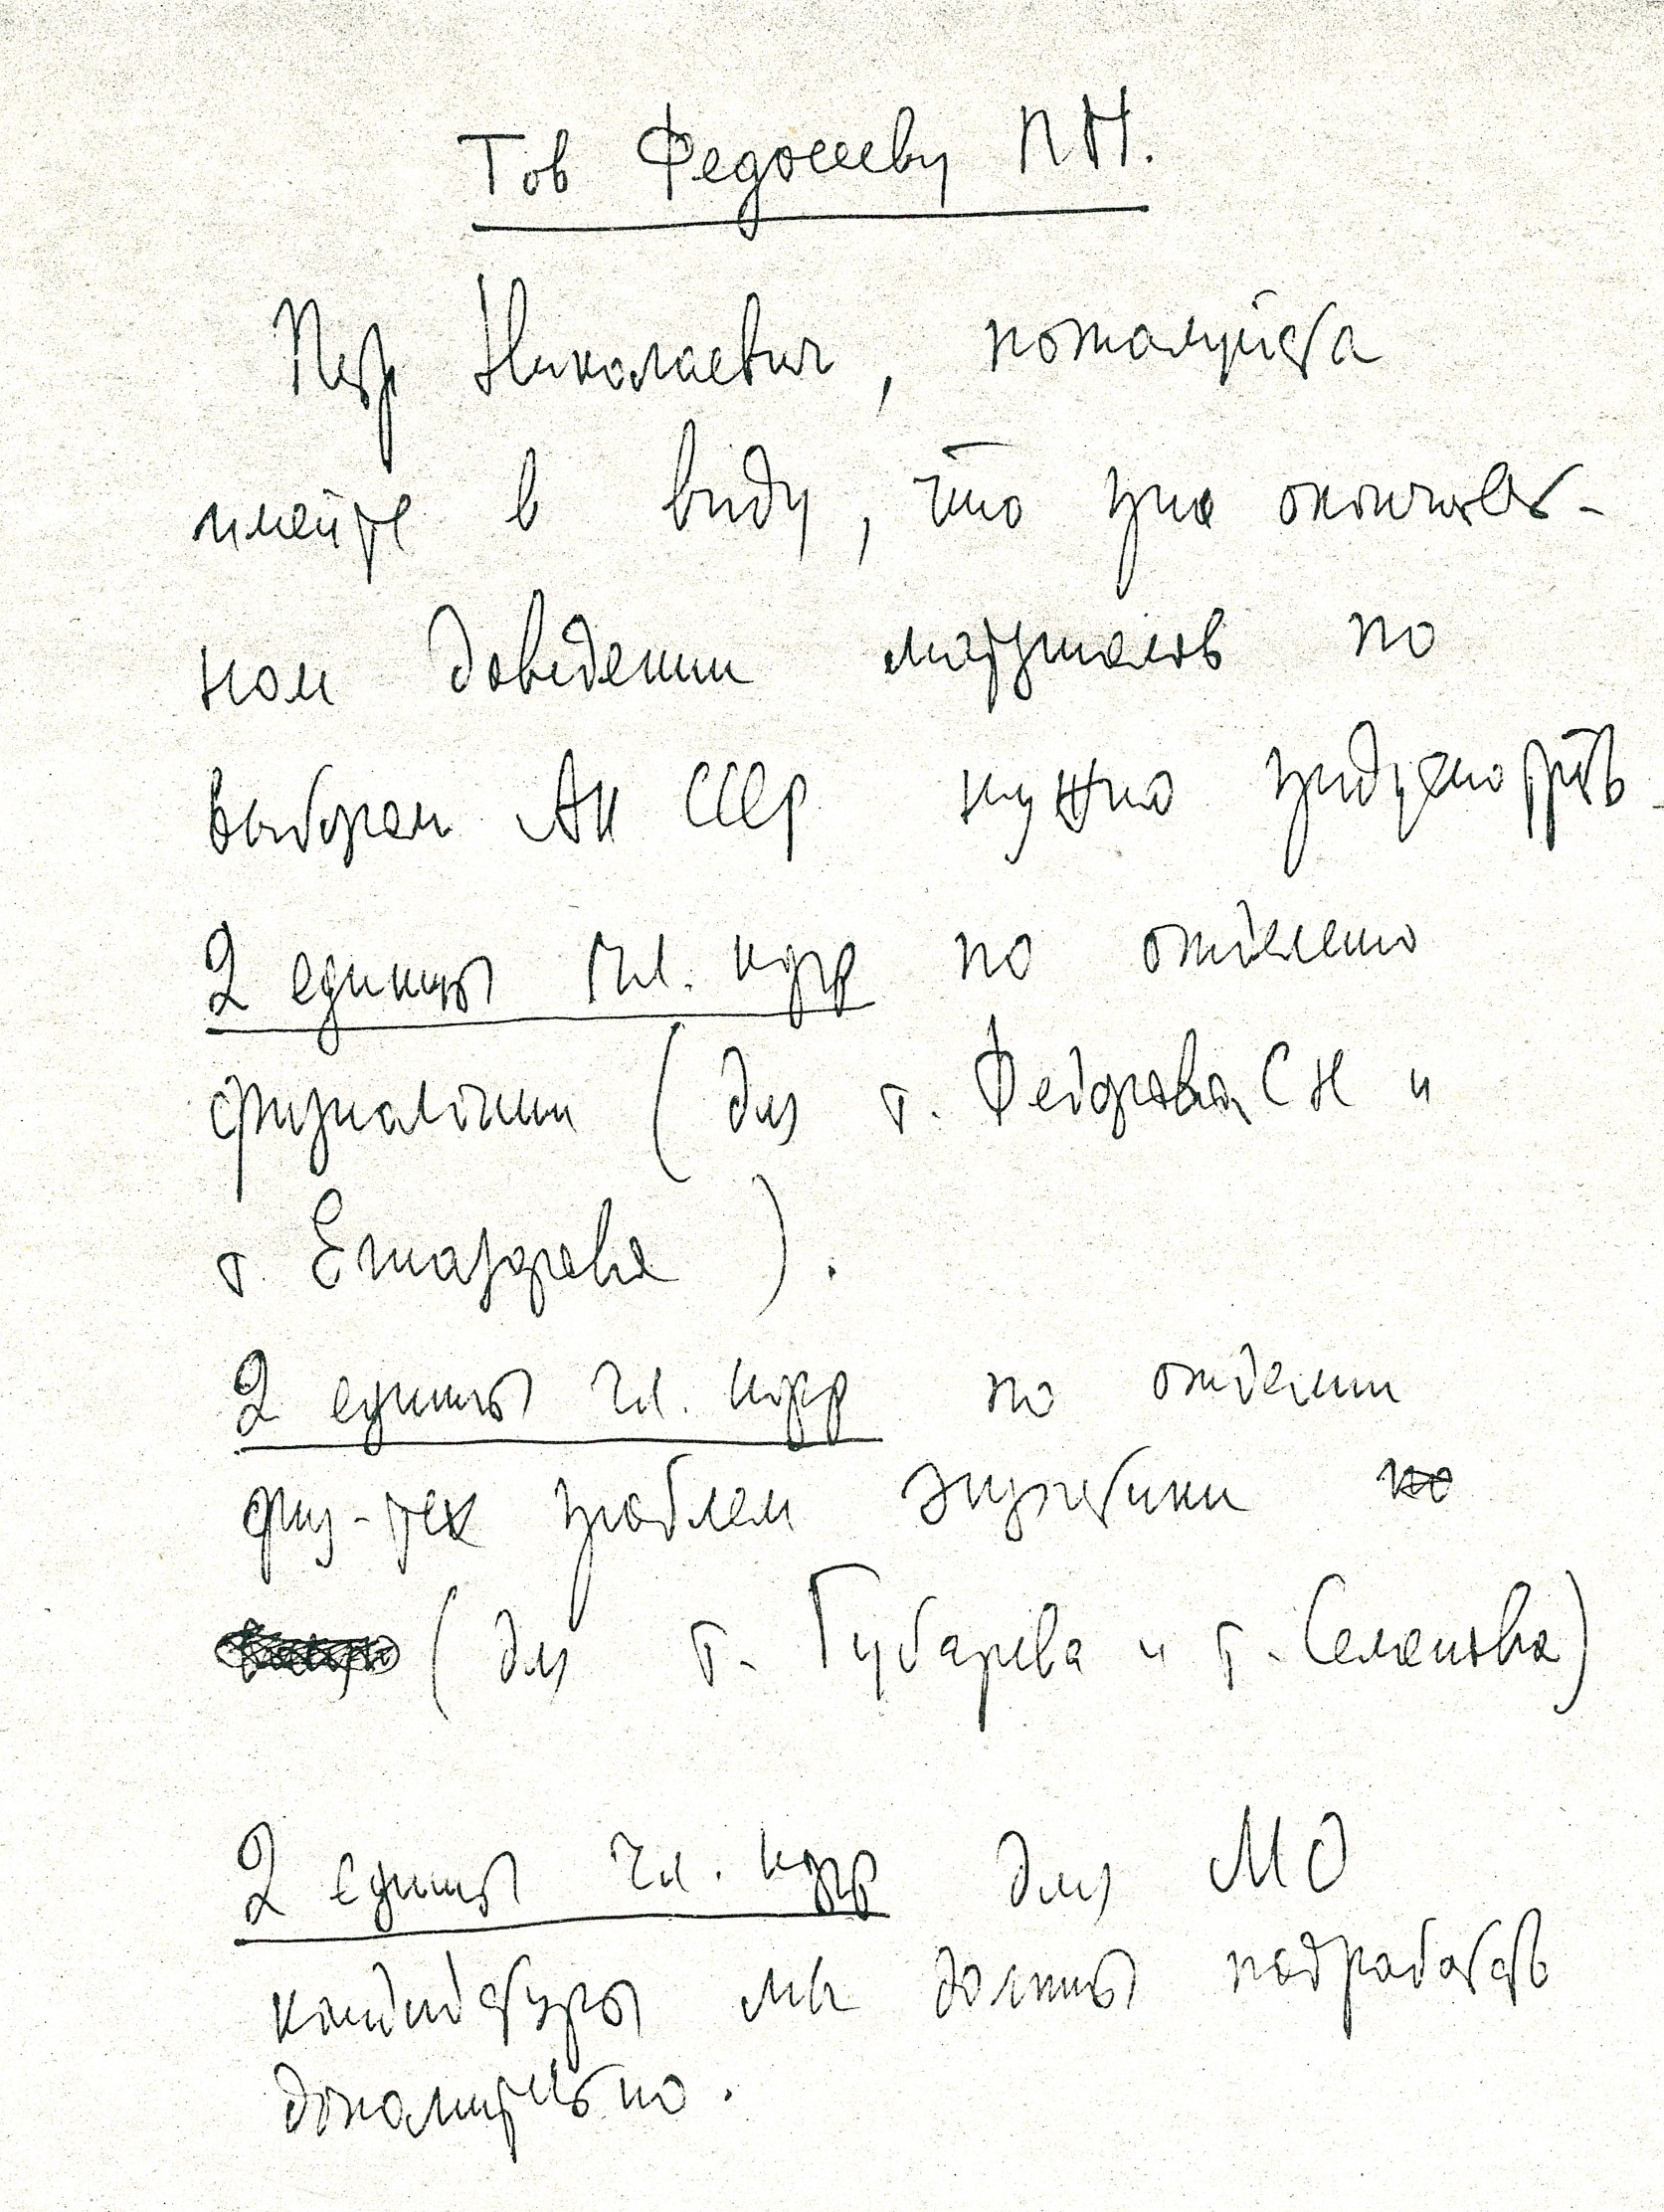 Тов Федосееву П Н.
Петр Николаевич, пожалуйста
имейте в виду, что при окончатель-
ном доведении материалов по
выборам АН СССР нужно предусмотреть
2 единицы чл. корр по отделению
физиологии (для т. Федорова С Н и
т.
2 единицы чл. корр по отделению
физ-тех проблем энергетики по
(для т. Губарева и т. Семенова)
2 единицы чл. корр для МО
кандидатуры мы должны подработать
дополнительно.